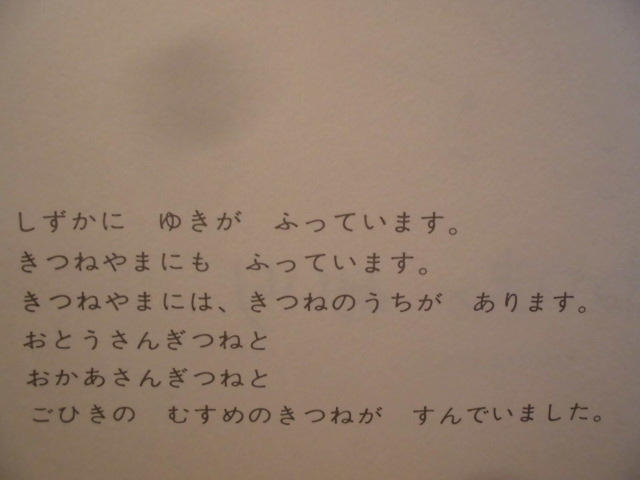 しずかに　ゆきが　ふっています。
きつねやまにも　ふっています。
きつねやまには、きつねのうちが　あります。
おとうさんぎつねと
おかあさんぎつねと
ごひきの　むすめのきつねが　すんでいました。